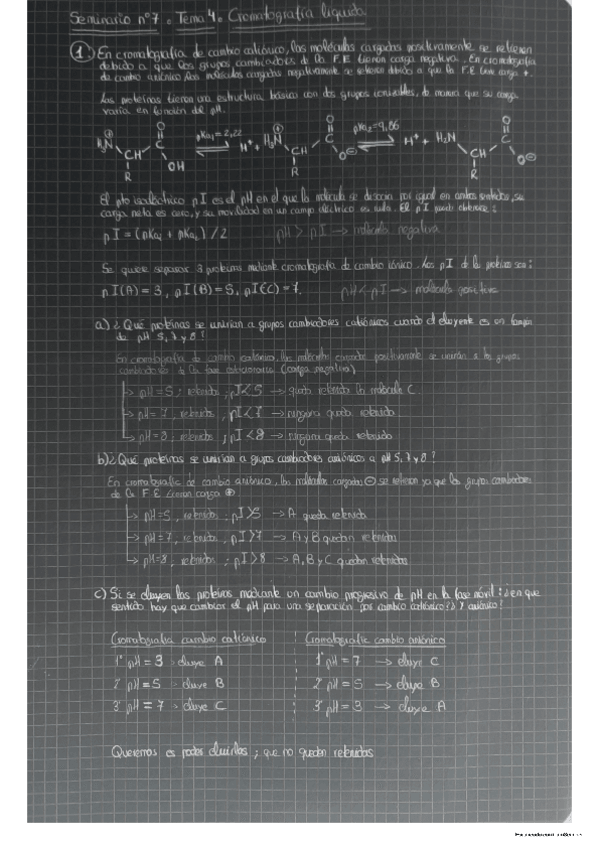 Seminario nº7. Tema 4. Cromatografía líquida
1. En cromatografía de cambio catiónico, las moléculas cargadas positivamente se retienen
debido a que los grupos cambiadores de la F.E tienen carga negativa. En cromatografía
de cambio aniónico las moléculas cargadas negativamente se retienen debido a que la F.E tiene carga +.
Las proteínas tienen una estructura básica con dos grupos ionizables, de manera que su carga
varía en función del pH.
H3N CH R O OH pKa1=2,22 H+ + H3N CH R O O⊖ pKa2=9,86 H+ + H2N CH R O O⊖
El pto isoeléctrico pI es el pH en el que la molécula se disocia por igual en ambos sentidos, su
carga neta es cero, y su movilidad en un campo eléctrico es nula. El pI puede obtenerse:
pI = (pKa1 + pKa2) / 2 pH > pI → molécula negativa
Se quiere separar 3 proteínas mediante cromatografía de cambio iónico. Los pI de las proteínas son:
pI(A) = 3, pI(B) = 5, pI(C) = 7. pH < pI → molécula positiva
a) ¿Qué proteínas se unirían a grupos cambiadores catiónicos cuando el eluyente es un tampón
de pH 5, 7 y 8?
En cromatografía de cambio catiónico, las moléculas cargadas positivamente se unirán a los grupos
cambiadores de la fase estacionaria (carga negativa)
→ pH = 5; retenido, pI < 5 → queda retenida la molécula C
→ pH = 7; retenido, pI < 7 → ninguna queda retenida
→ pH = 8; retenido, pI < 8 → ninguna queda retenida
b) ¿Qué proteínas se unirían a grupos cambiadores aniónicos a pH 5, 7 y 8?
En cromatografía de cambio aniónico, las moléculas cargadas ⊖ se retienen ya que los grupos cambiadores
de la F.E tienen carga ⊕
→ pH = 5, retenido; pI > 5 → A queda retenida
→ pH = 7, retenido; pI > 7 → A y B quedan retenidas
→ pH = 8, retenido; pI > 8 → A, B y C quedan retenidas
c) Si se eluyen las proteínas, mediante un cambio progresivo de pH en la fase móvil: ¿en que
sentido hay que cambiar el pH para una separación por cambio catiónico? ¿Y aniónico?
Cromatografía cambio catiónico Cromatografía cambio aniónico
1º pH = 3 → eluye A 1º pH = 7 → eluye C
2º pH = 5 → eluye B 2º pH = 5 → eluye B
3º pH = 7 → eluye C 3º pH = 3 → eluye A
Queremos es poder eluirlas; que no queden retenidas